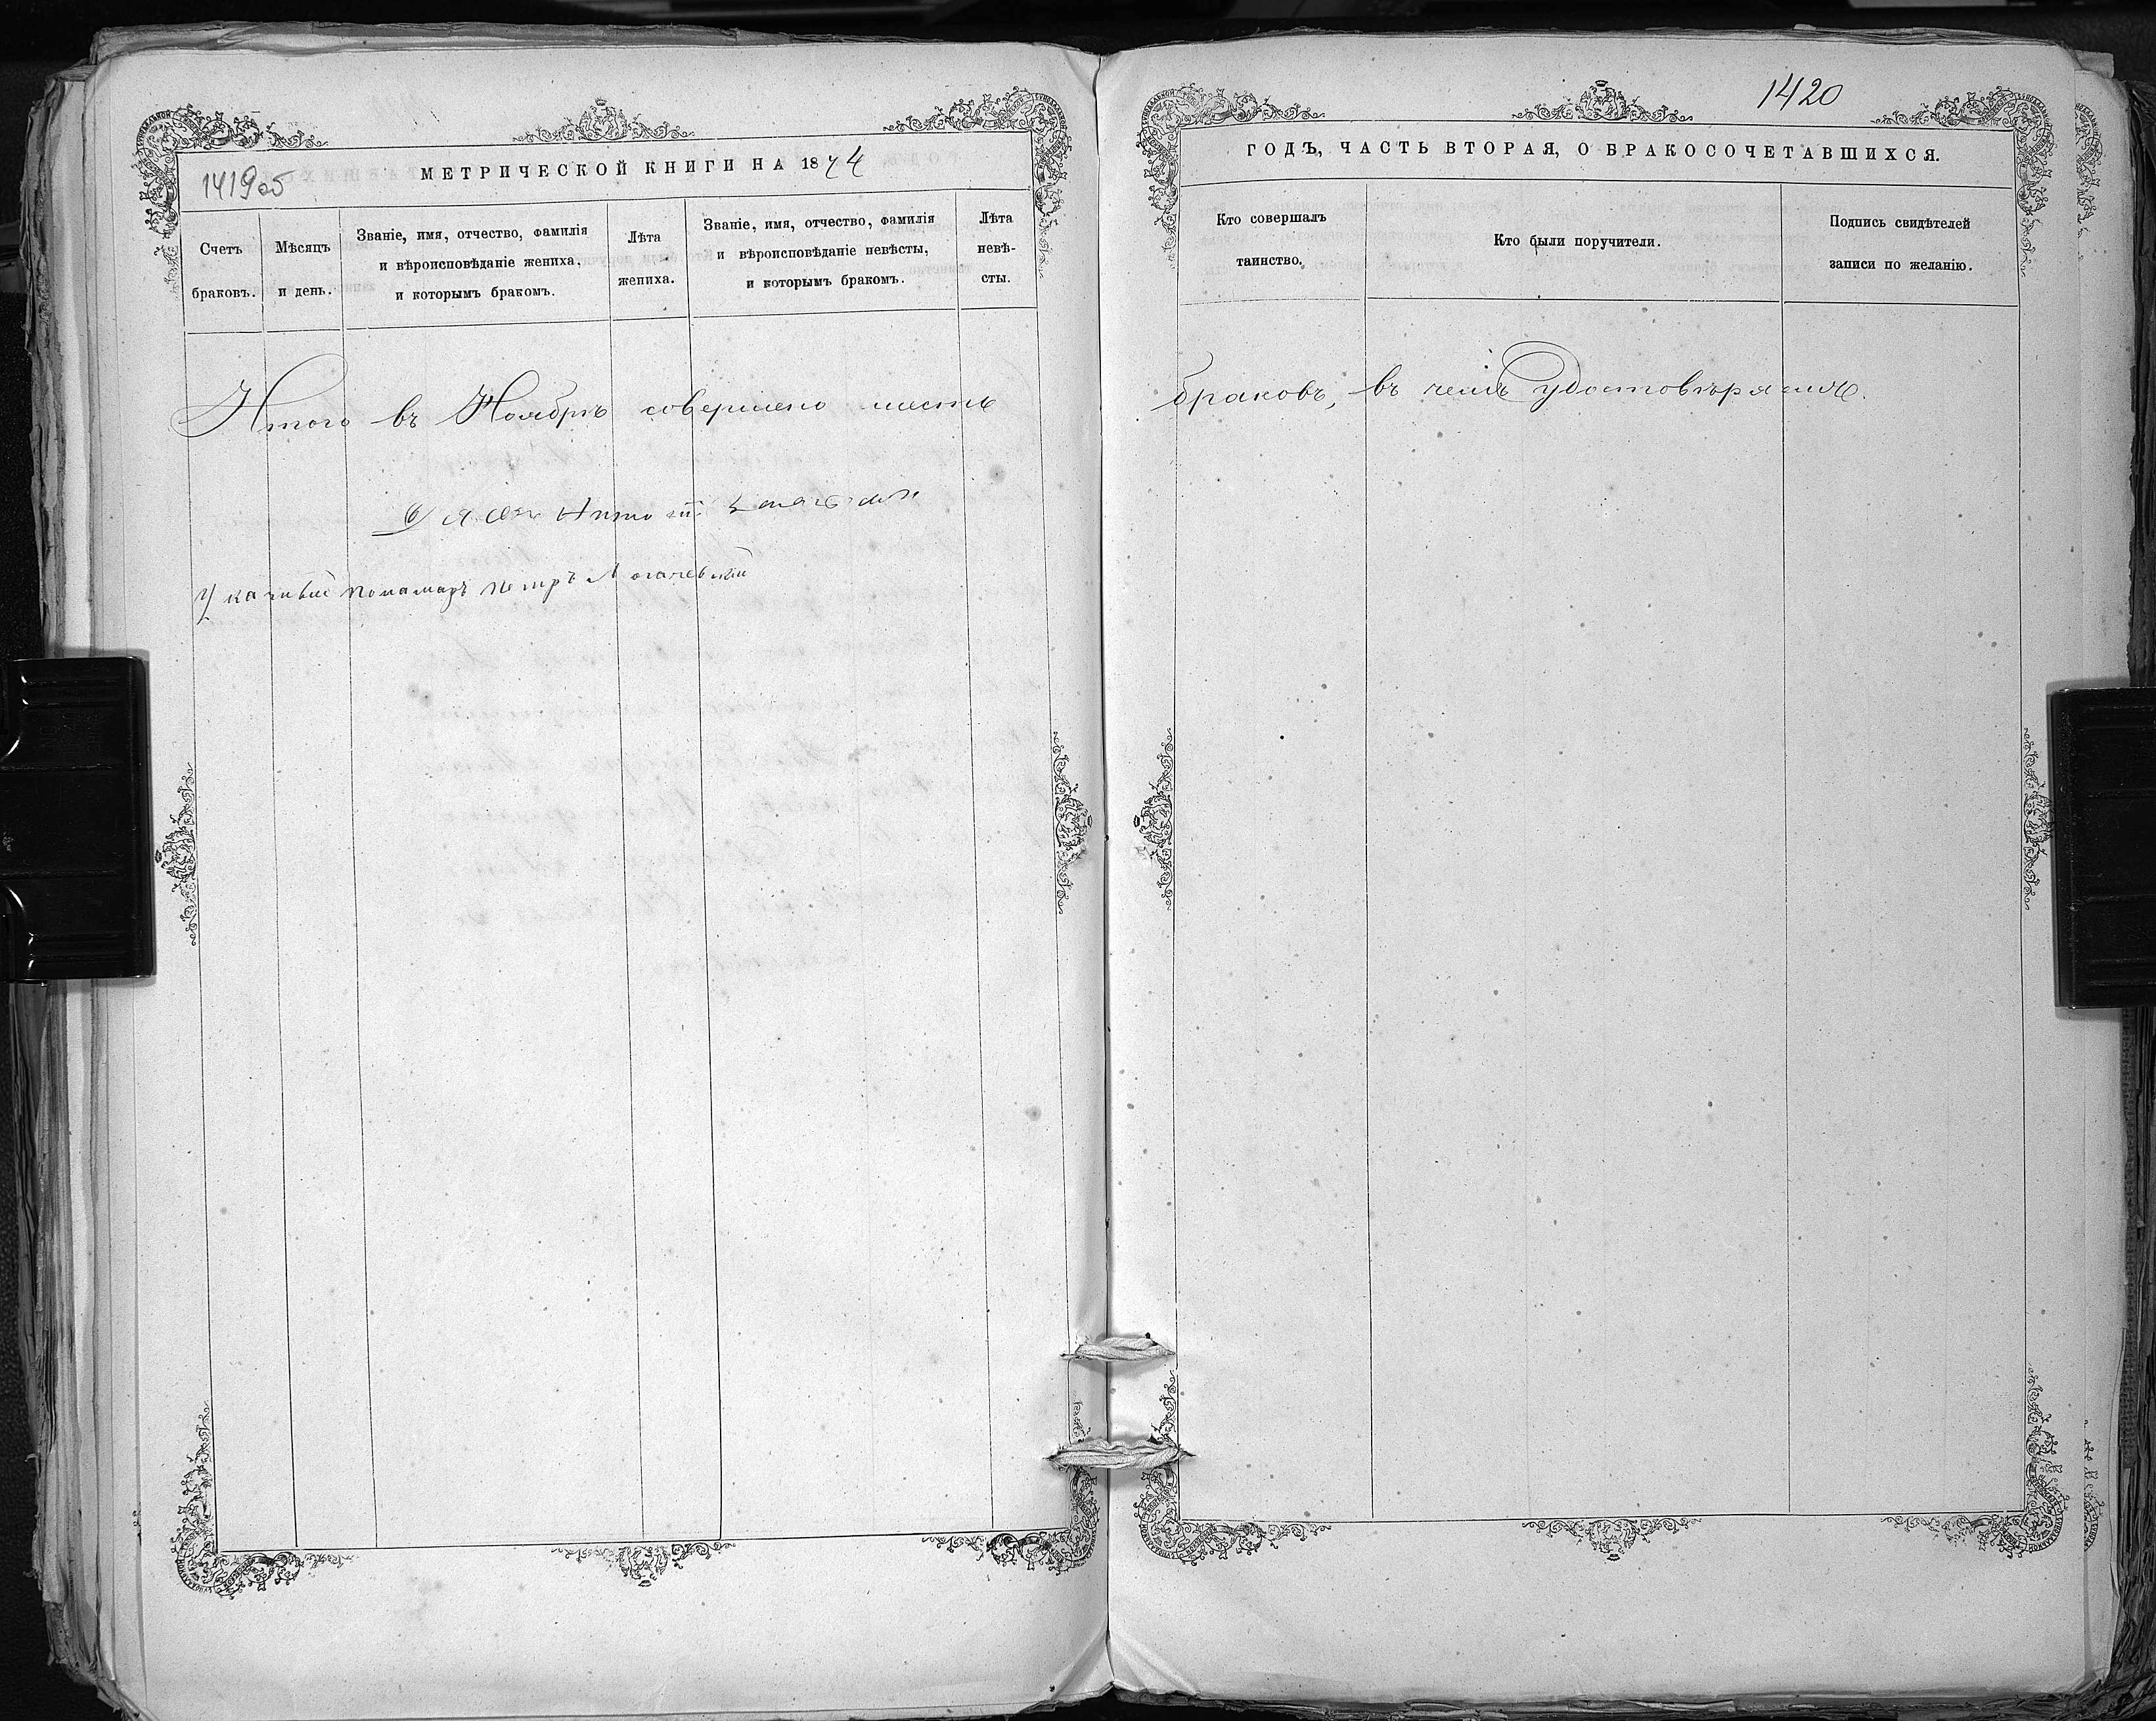 1419об
МЕТРИЧЕСКОЙ КНИГИ НА 1874
Счетъ браковъ.
Мѣсяцъ и день.
Званіе, имя, отчество, фамилія
и вѣроисповѣданіе жениха,
и которымъ бракомъ.
Лѣта
жениха.
Званіе, имя, отчество, фамилія
и вѣроисповѣданіе невѣсты,
и которымъ бракомъ.
Лѣта
невѣ-
сты.
Итого въ Ноябрѣ совершено шесть
Пономарь Петръ
1420
ГОДЪ, ЧАСТЬ ВТОРАЯ, О БРАКОСОЧЕТАВШИХСЯ.
Кто совершалъ
таинство.
Кто были поручители.
Подпись свидѣтелей
записи по желанію.
браковъ, въ чемъ удостовѣряемъ.